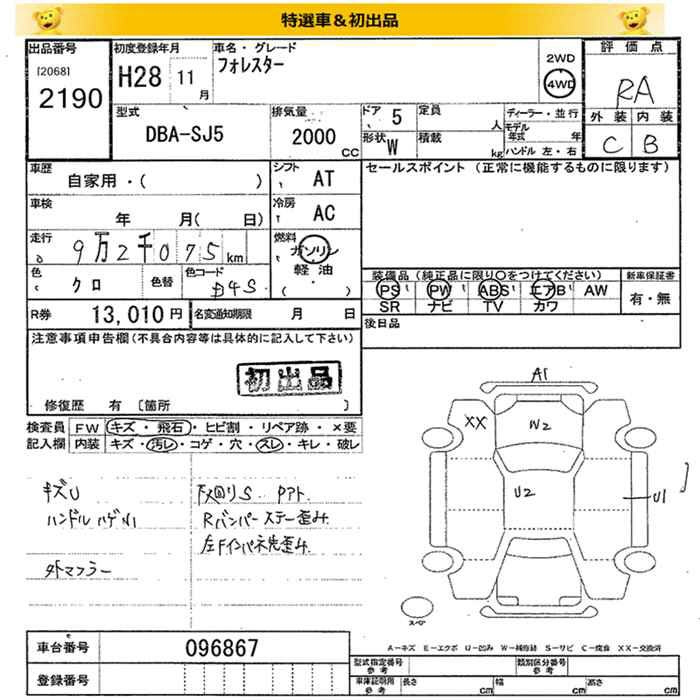 特選車＆初出品
出品番号 [2068] 2190
初度登録年月 H28 11月
車名・グレード フォレスター
2WD 4WD
評価点 RA
外装 内装
C B
型式 DBA-SJ5
排気量 2000 CC
ドア 5
定員 人
形状 W
積載 kg
ディーラー・並行
モデル年式 年
ハンドル 左・右
車歴 自家用・( )
シフト AT
セールスポイント (正常に機能するものに限ります)
車検 年 月( 日)
冷房 AC
走行 9万2千075km
燃料 ガソリン 軽油
色 クロ 色替
色コード D4S
装備品 (純正品に限り○をつけてください)
PS PW ABS エアB AW
SR ナビ TV カワ
新車保証書 有・無
R券 13,010円
名変通知期限 月 日
後日品
注意事項申告欄(不具合内容等は具体的に記入して下さい)
初出品
修復歴 有 [箇所
検査員記入欄
FW キズ・飛石・ヒビ割・リペア跡・×要
内装 キズ・汚レ・コゲ・穴・スレ・キレ・破レ
キズU
ハンドルハゲ小
外マフラー
下回りS PアT.
Rバンパーステー歪み.
左Fインパネ先歪み.
A1
XX
W2
U2
U1
スペア
A-キズ E-エクボ U-凹み W-補修跡 S-サビ C-腐食 XX-交換済
車台番号 096867
登録番号
型式指定番号 参考
類別区分番号 参考
車庫証明用 参考 長さ cm 幅 cm 高さ cm